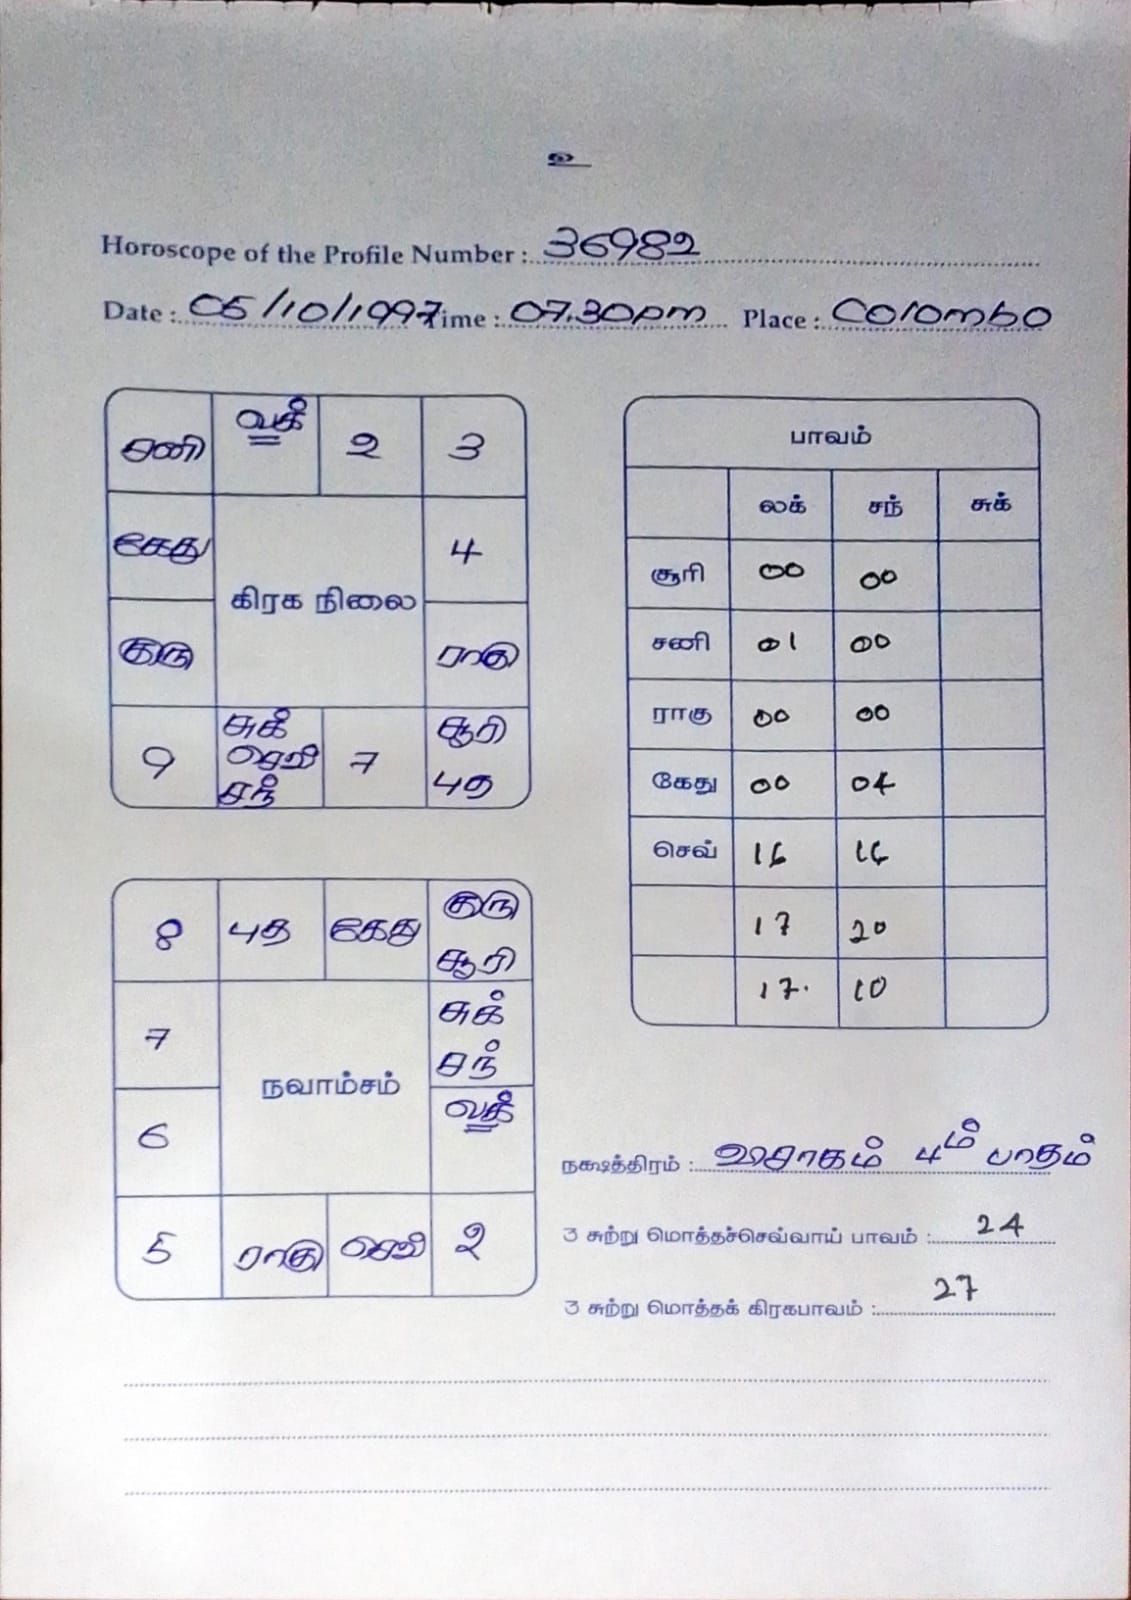 உ
Horoscope of the Profile Number : 36982
Date : 05/10/1997 Time : 07.30pm Place : Colombo
சனி லக் 2 3
கேது 4
கிரக நிலை
குரு ராகு
9 சுக் செவ் சந் 7 சூரி புத
பாவம்
லக் சந் சுக்
சூரி 00 00
சனி 01 00
ராகு 00 00
கேது 00 04
செவ் 16 16
17 20
17. 10
8 புத கேது குரு சூரி
7 சுக் சந்
நவாம்சம்
6 லக்
5 ராகு செவ் 2
நக்ஷத்திரம் : விசாகம் 4ம் பாதம்
3 சுற்று மொத்தச்செவ்வாய் பாவம் : 24
3 சுற்று மொத்தக் கிரகபாவம் : 27